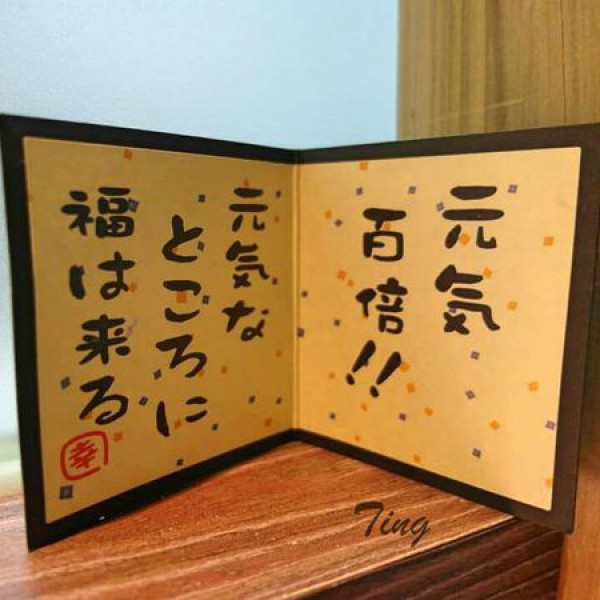 元気
百倍!!
元気な
ところに
福は来る
幸
Ting